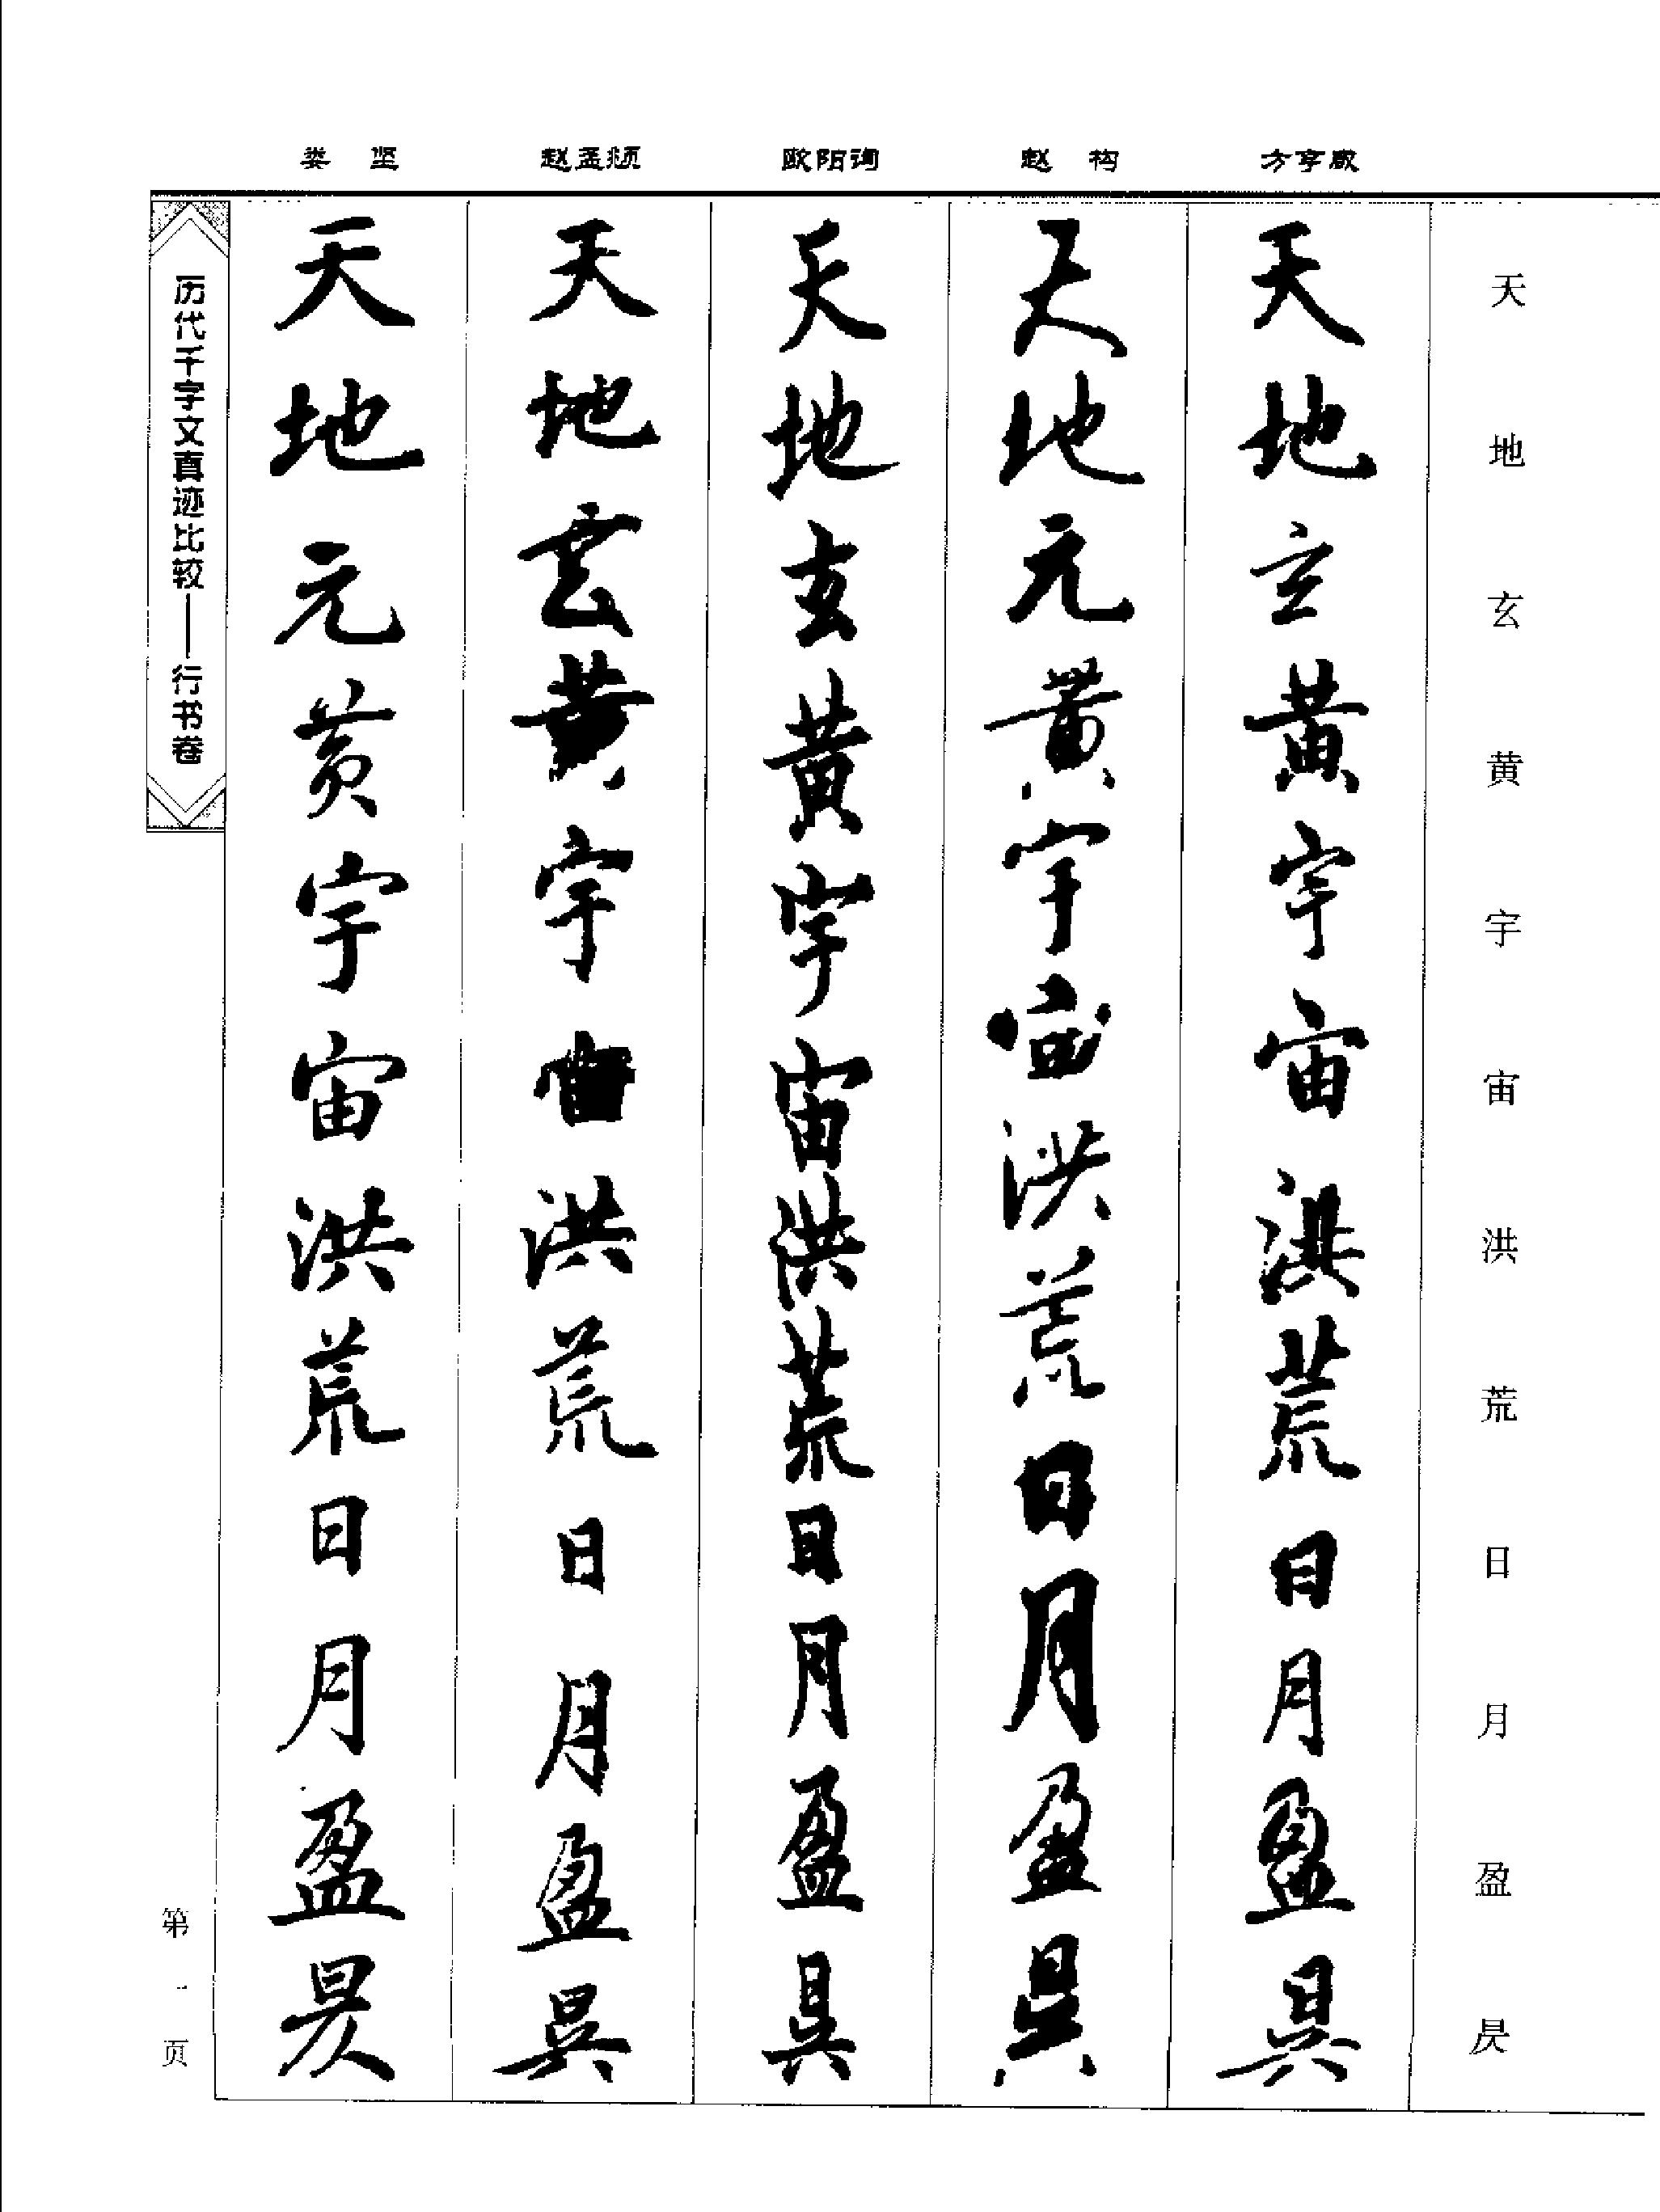 天地玄黄宇宙洪荒日月盈昃
方亨咸
天地玄黃宇宙洪荒日月盈昃
赵构
天地元黃宇宙洪荒日月盈昃
欧阳询
天地玄黃宇宙洪荒日月盈昃
赵孟頫
天地雲黃宇宙洪荒日月盈昃
娄坚
天地元黃宇宙洪荒日月盈昃
历代千字文真迹比较——行书卷
第一页